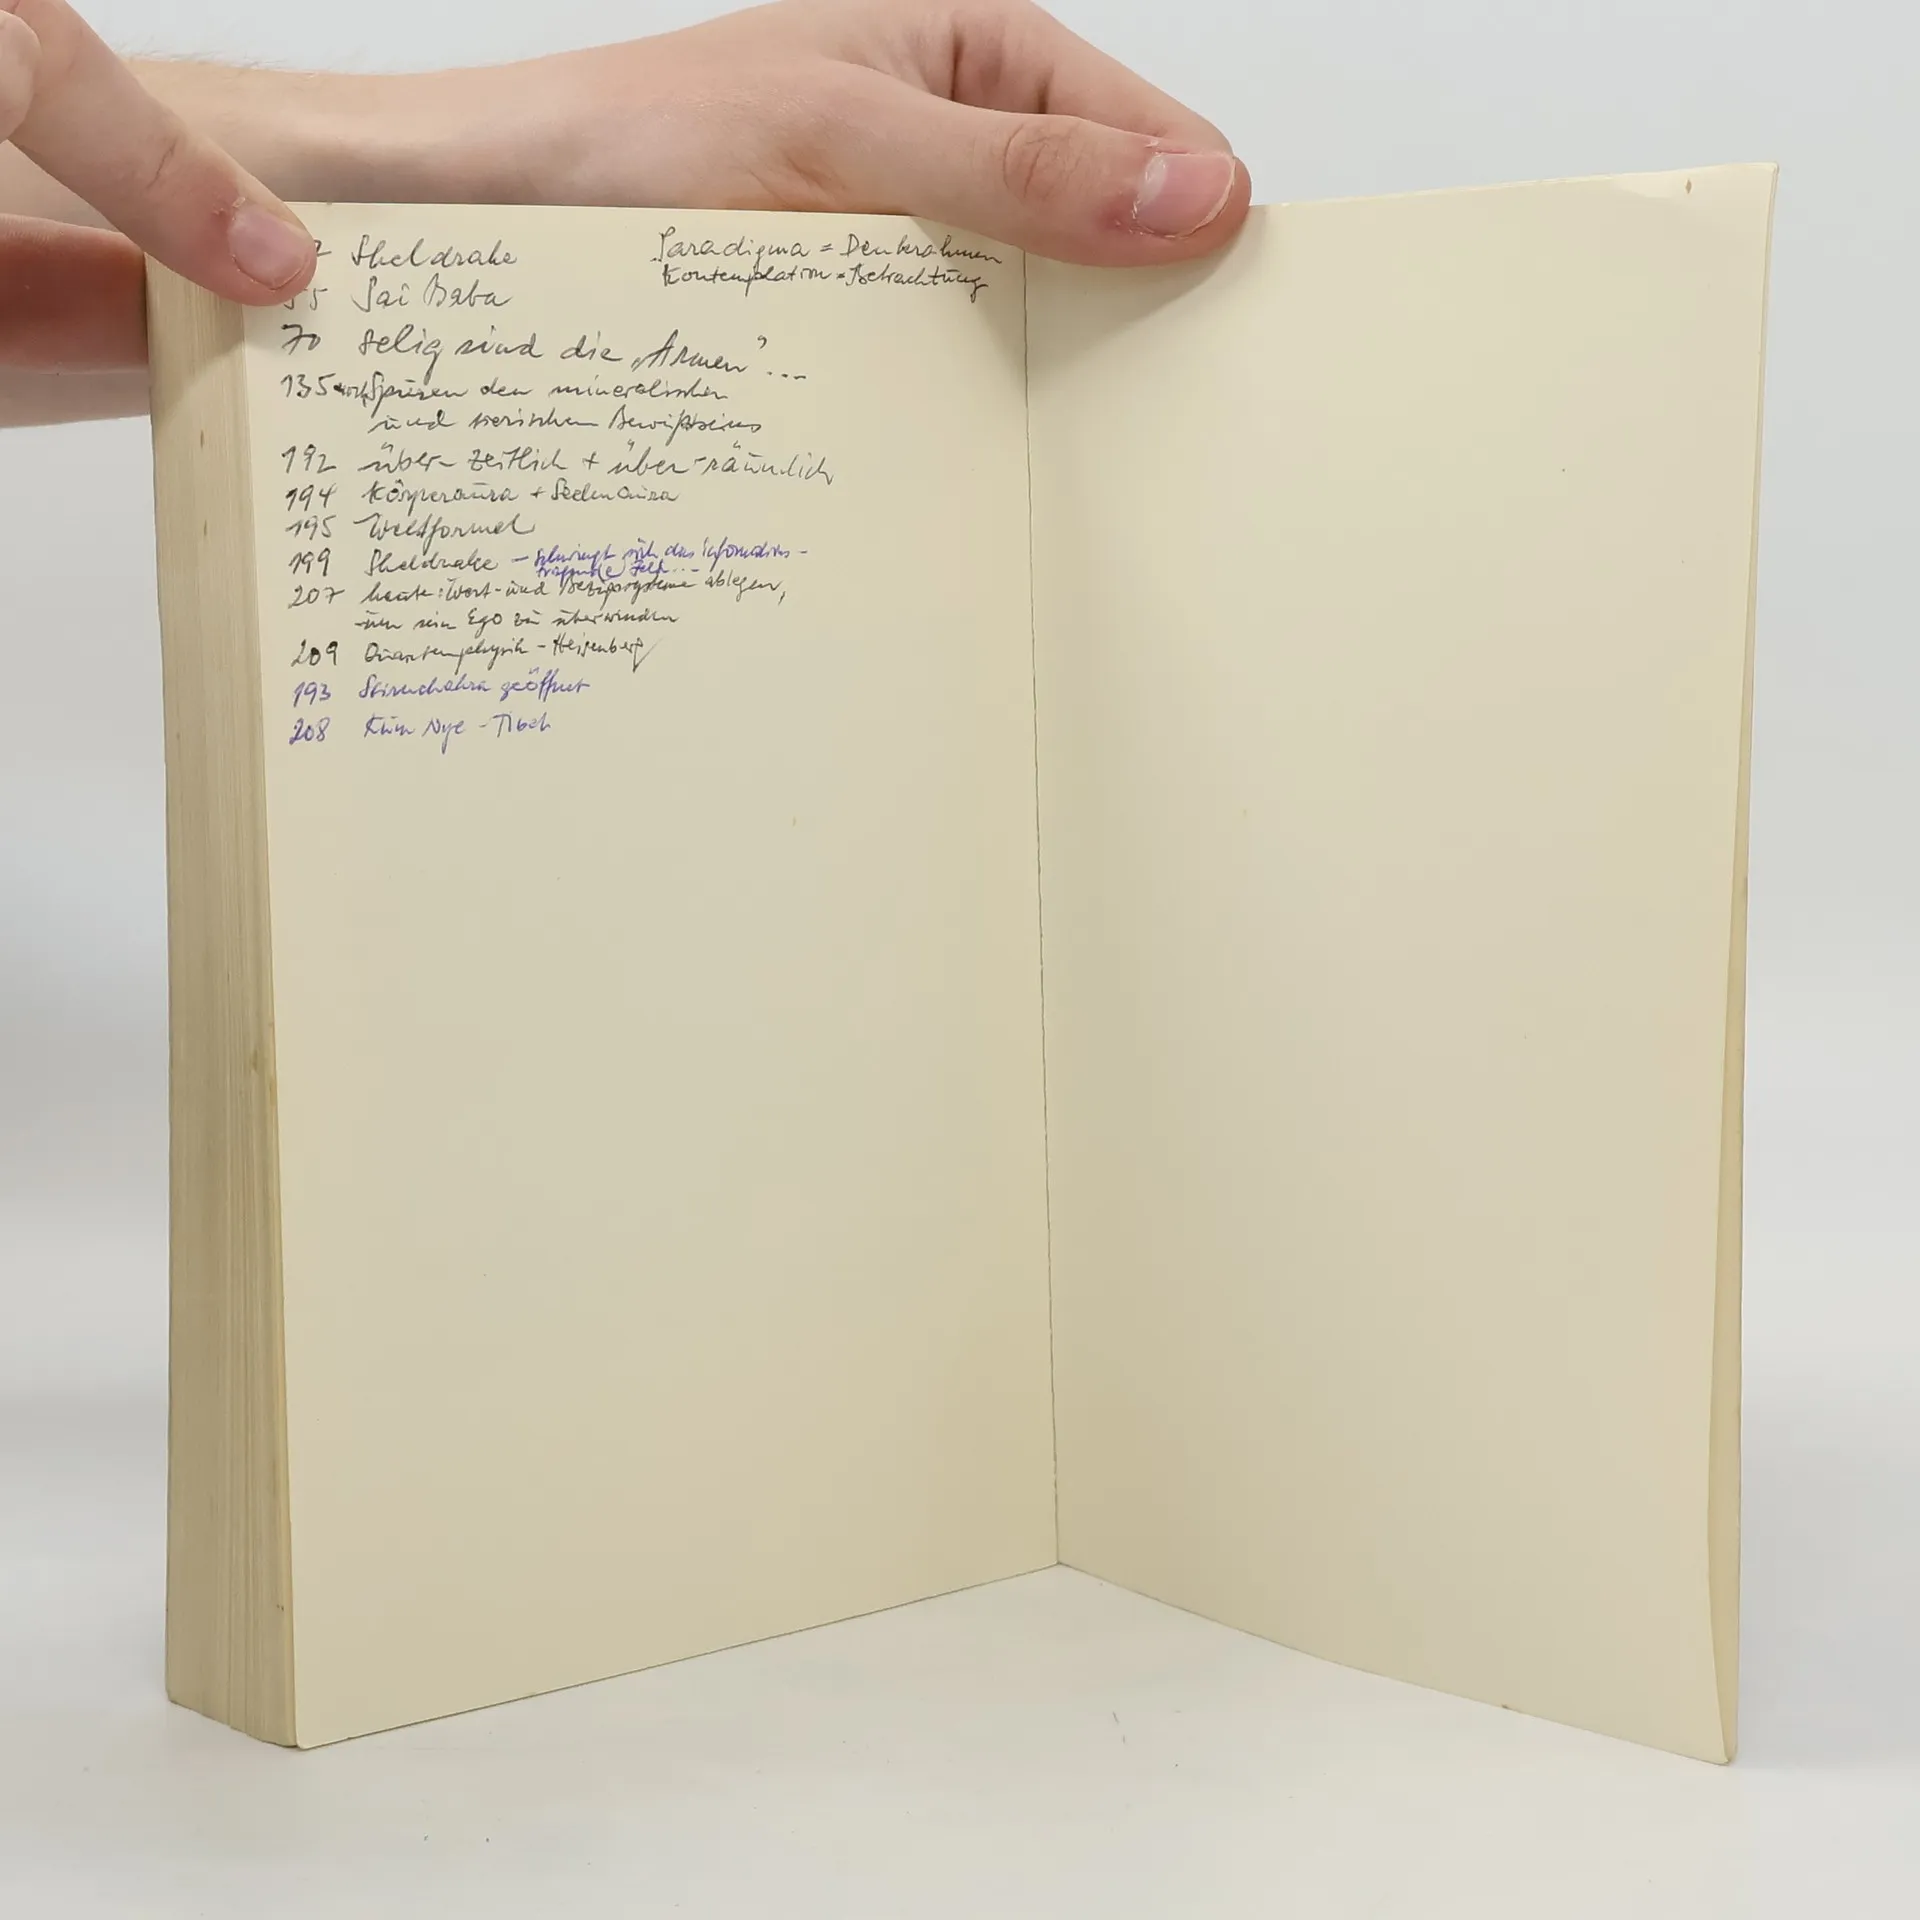 Sheldrake
Paradigma = Denkrahmen
Kontemplation = Betrachtung
55 Sai Baba
70 selig sind die „Armen" ...
135 Spüren den mineralischen
und tierischen Bewußtseins
192 über-zeitlich + über-räumlich
194 Körperaura + Seelenaura
195 Weltformel
199 Sheldrake – schwingt sich das informations-
tragende Feld ...
207 heute: Wert- und Bezugssysteme ablegen,
um sein Ego zu überwinden
209 Quantenphysik – Heisenberg
193 Stirnchakra geöffnet
208 Kum Nye – Tibet